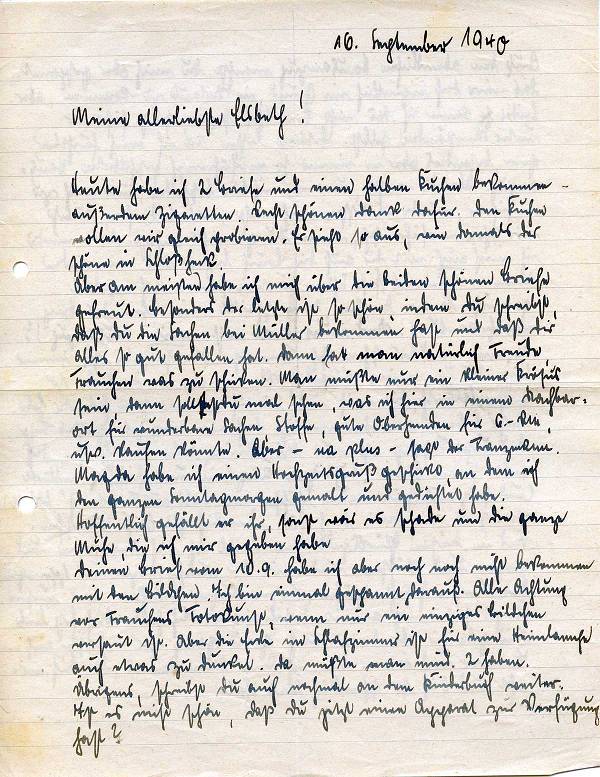 16. September 1940
Meine allerliebste Elsbeth!
Heute habe ich 2 Briefe und einen halben Kuchen bekommen –
außerdem Zigaretten. Recht schönen Dank dafür. Den Kuchen
wollen wir gleich probieren. Er sieht so aus, wie damals der
schöne in Schloßheck.
Aber am meisten habe ich mich über die beiden schönen Briefe
gefreut. Besonders der letzte ist so schön, indem Du schreibst,
daß Du die Sachen bei Müller bekommen hast und daß Dir
alles so gut gefallen hat. Dann hat man natürlich Freude,
Frauchen was zu schicken. Man müßte nur ein kleiner Krösus
sein, dann solltest Du mal sehen, was ich hier in einem Nachbar-
ort für wunderbare Sachen Stoffe, gute Oberhemden für 6.- RM,
usw. kaufen könnte. Aber – na plus – sagt der Franzmann.
Magda habe ich einen Hochzeitsgruß geschickt, an dem ich
den ganzen Sonntagmorgen gemalt und gedichtet habe.
Hoffentlich gefällt er ihr, sonst wär es schade um die ganze
Mühe, die ich mir gegeben habe
Deinen Brief vom 10.9. habe ich aber noch noch nicht bekommen
mit den Bildchen. Ich bin einmal gespannt darauf. Alle Achtung
vor Frauchens Fotokunst, wenn nur ein einziges Bildchen
versaut ist. Aber die Ecke im Schlafzimmer ist für eine Heimlampe
auch etwas zu dunkel. Da müßte man mind. 2 haben.
Übrigens, schreibst Du auch nochmal an dem Kinderbuch weiter.
Ist es nicht schön, daß Du jetzt einen Apparat zur Verfügung
hast?